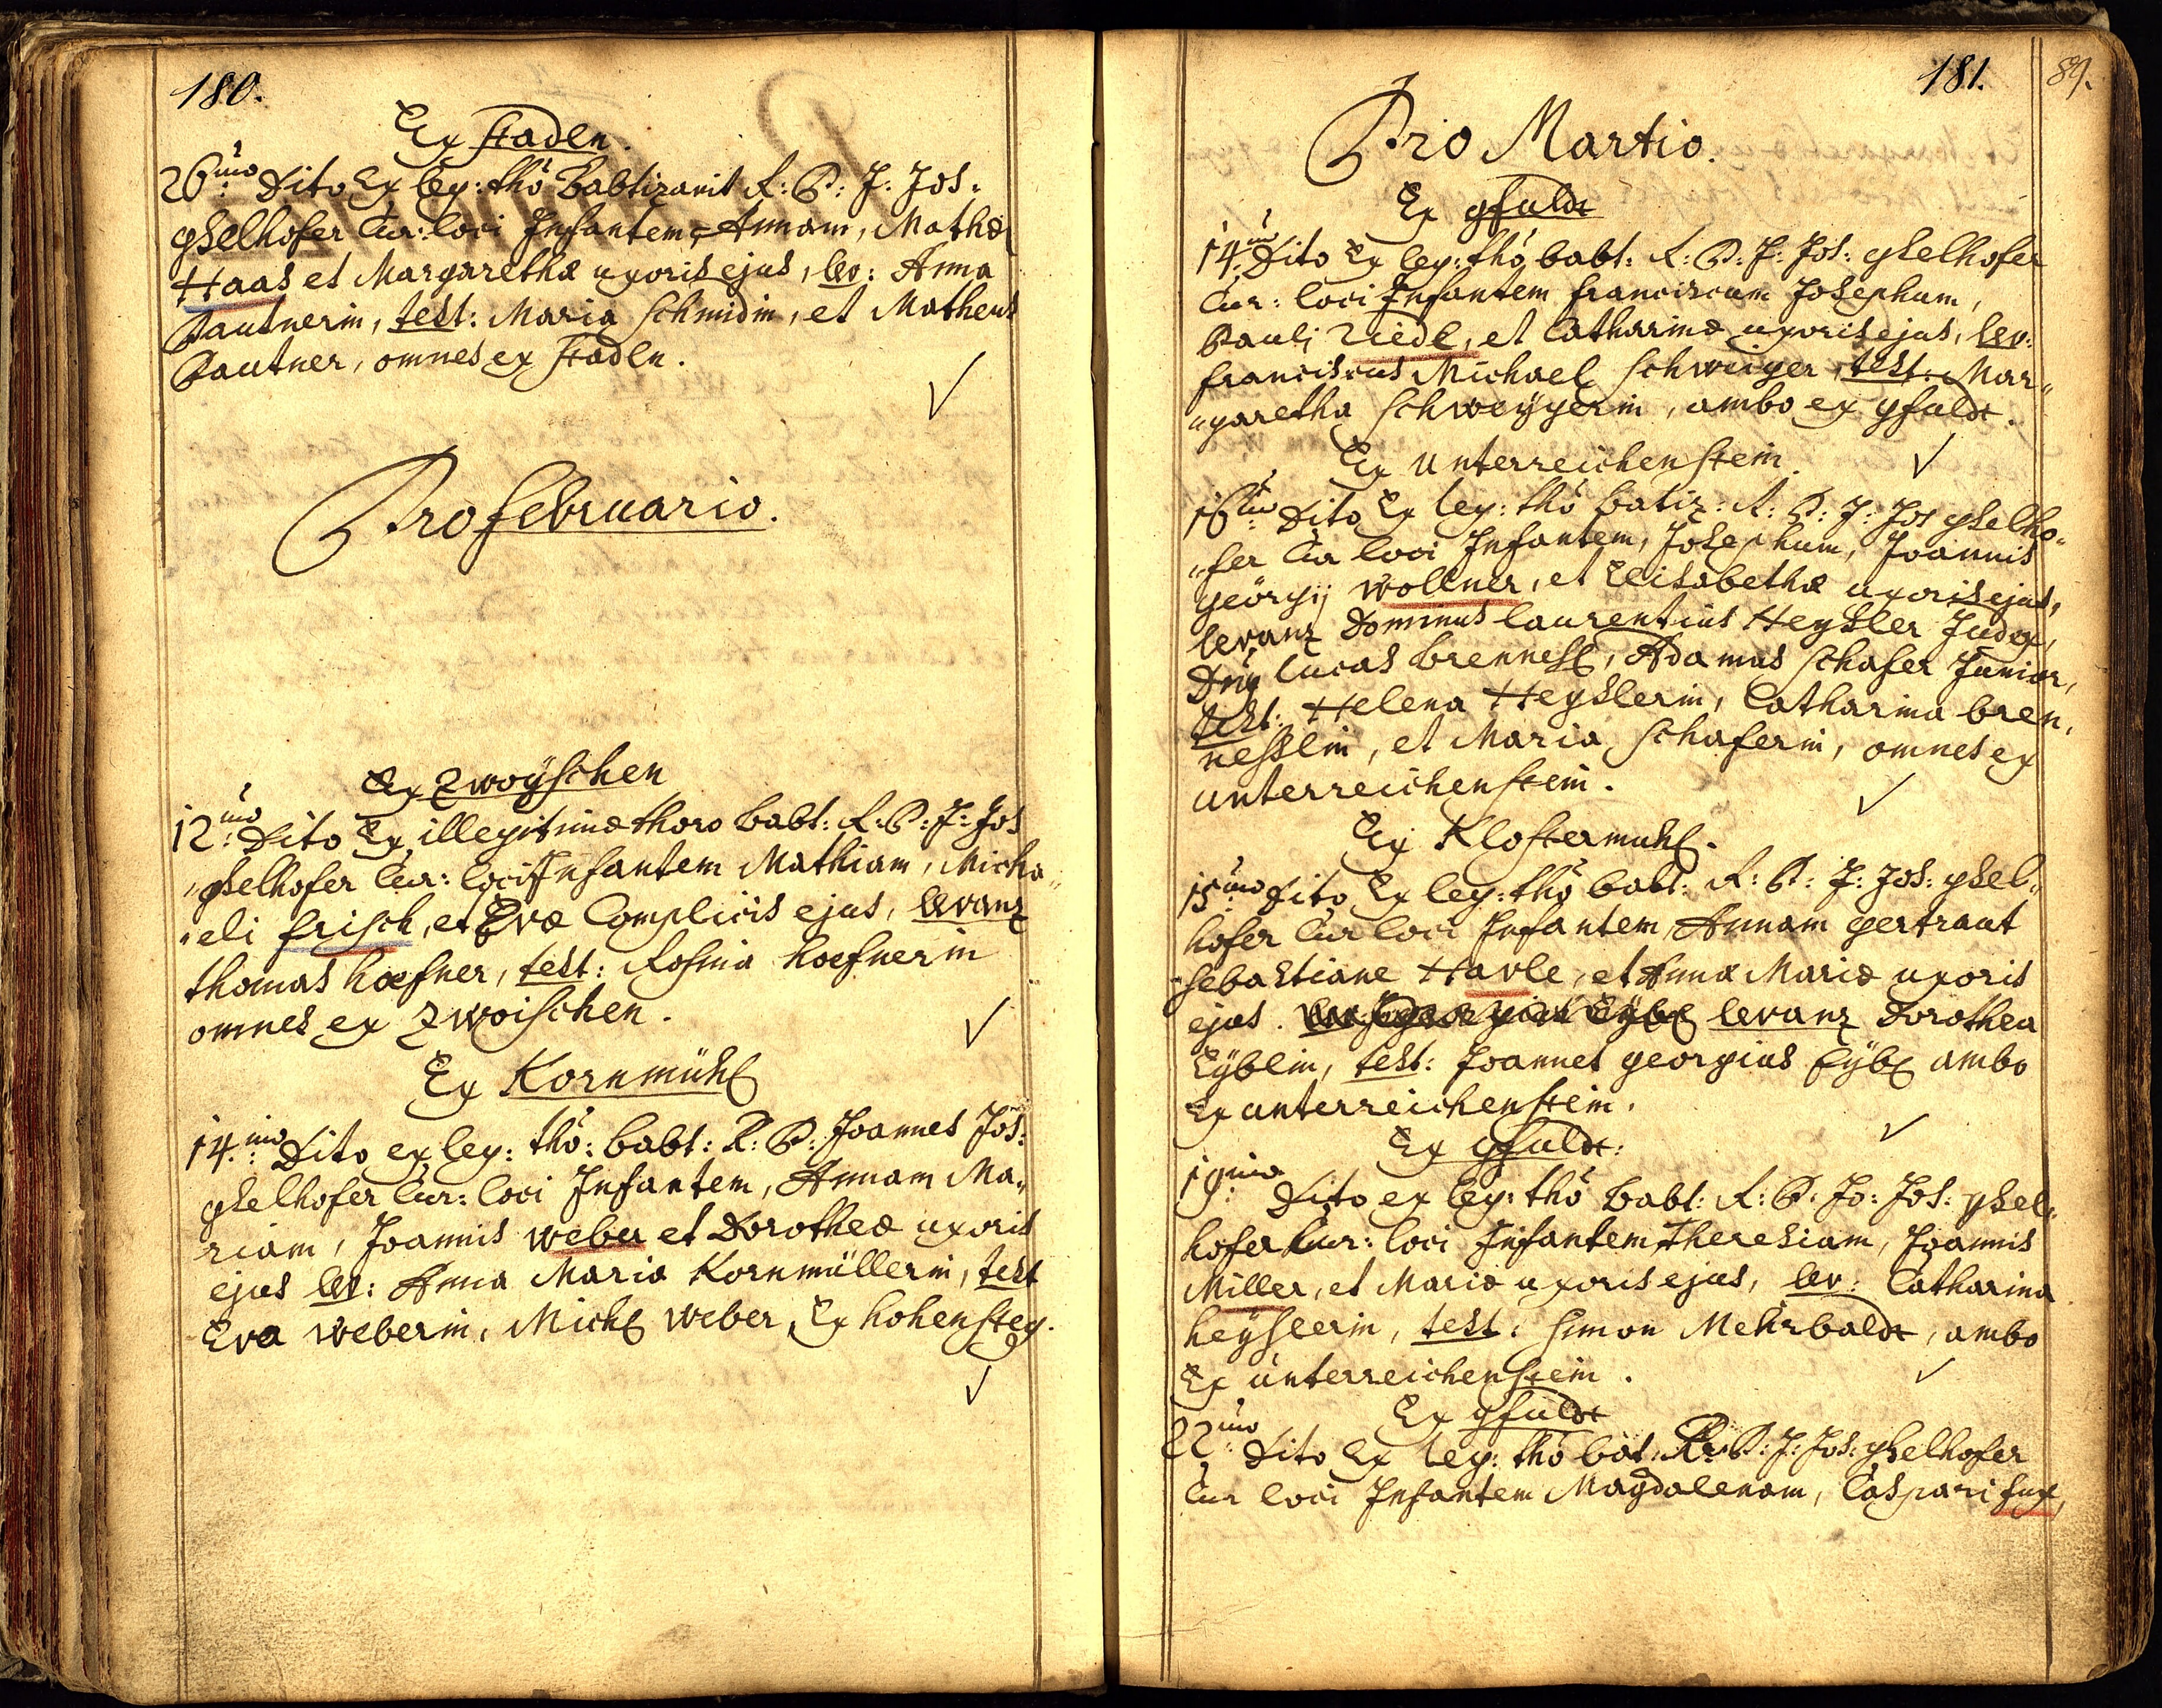 180.
Ex Stadln.
26.mo Dito Ex leg: thô Babtizavit R: P: J: Jos:
gselhofer Cur: loci Infantem Annam, Mathæ
Haas et Margarethæ uxoris ejus, lev: Anna
Pautnerin, test: Maria Schmidin, et Matheus
Pautner, omnes ex Stadln.
Pro februario.
Ex Zwoÿschen
12.mo Dito Ex illegitimæ thoro babt: R: P: J: Jos
"gselhofer Cur: loci Infantem Mathiam, Micha„
"eli frisch, et Evæ Complicis ejus, levanz
thomas hoefner, test: Rosina hoefnerin
omnes ex Zwoischen.
Ex Kornmühl
14.mo Dito ex leg: thô: babt: R: P: Joannes Jos:
gselhofer Cur: loci Infantem, Annam Ma„
riam, Joannis weber et Dorotheæ uxoris
ejus lev: Anna Maria Kornmüllerin, test
Eva weberin, Michl weber, Ex hohensteg.
181.
89.
Pro Martio.
Ex gfuldt
14.mo Dito Ex leg: thô babt: R: P: J: Jos: gselhofer
Cur: loci Infantem franciscum Josephum,
Pauli Riedl, et Catharinæ uxoris ejus, lev:
franciscus Michael Schweiger, test: Mar„
"garetha Schweÿgerin, ambo ex gfuldt.
Ex unterreichenstein.
16.mo Dito Ex leg: thô batiz: R: P: J: Jos gselho„
"fer Cur loci Infantem, Josephum, Joannis
geörgij wollner, et Elisabethæ uxoris ejus,
levanz Dominus laurentius Heysler Judex,
Dnus lucas brennesl, Adamus Schafer Junior,
test: Helena Heyslerin, Catharina bren„
nesslin, et Maria Schaferin, omnes ex
unterreichenstein.
Ex Klostermühl.
15.mo Dito Ex leg: thô babt: R: P: J: Jos: gsel„
hofer Cur loci Infantem Annam gertraut
Sebastiane Havle, et Annæ Mariæ uxoris
ejus. levanz Dorothea
Eÿblin, test: Joannes georgius Eÿbl ambo
Ex unterreichenstein.
Ex gfuldt:
19.mo Dito ex leg: thô babt: R: P: Jo: Jos: gsel„
hofer Cur: loci Infantem Theresiam, Joannis
Miller, et Mariæ uxoris ejus, lev: Catharina
heÿslerin, test: simon Mehrbaldt, ambo
Ex unterreichenstein.
Ex gfuldt
22.mo Dito Ex leg: thô bat: R: P: J: Jos: gselhofer
Cur loci Infantem Magdalenam, Caspari fux,